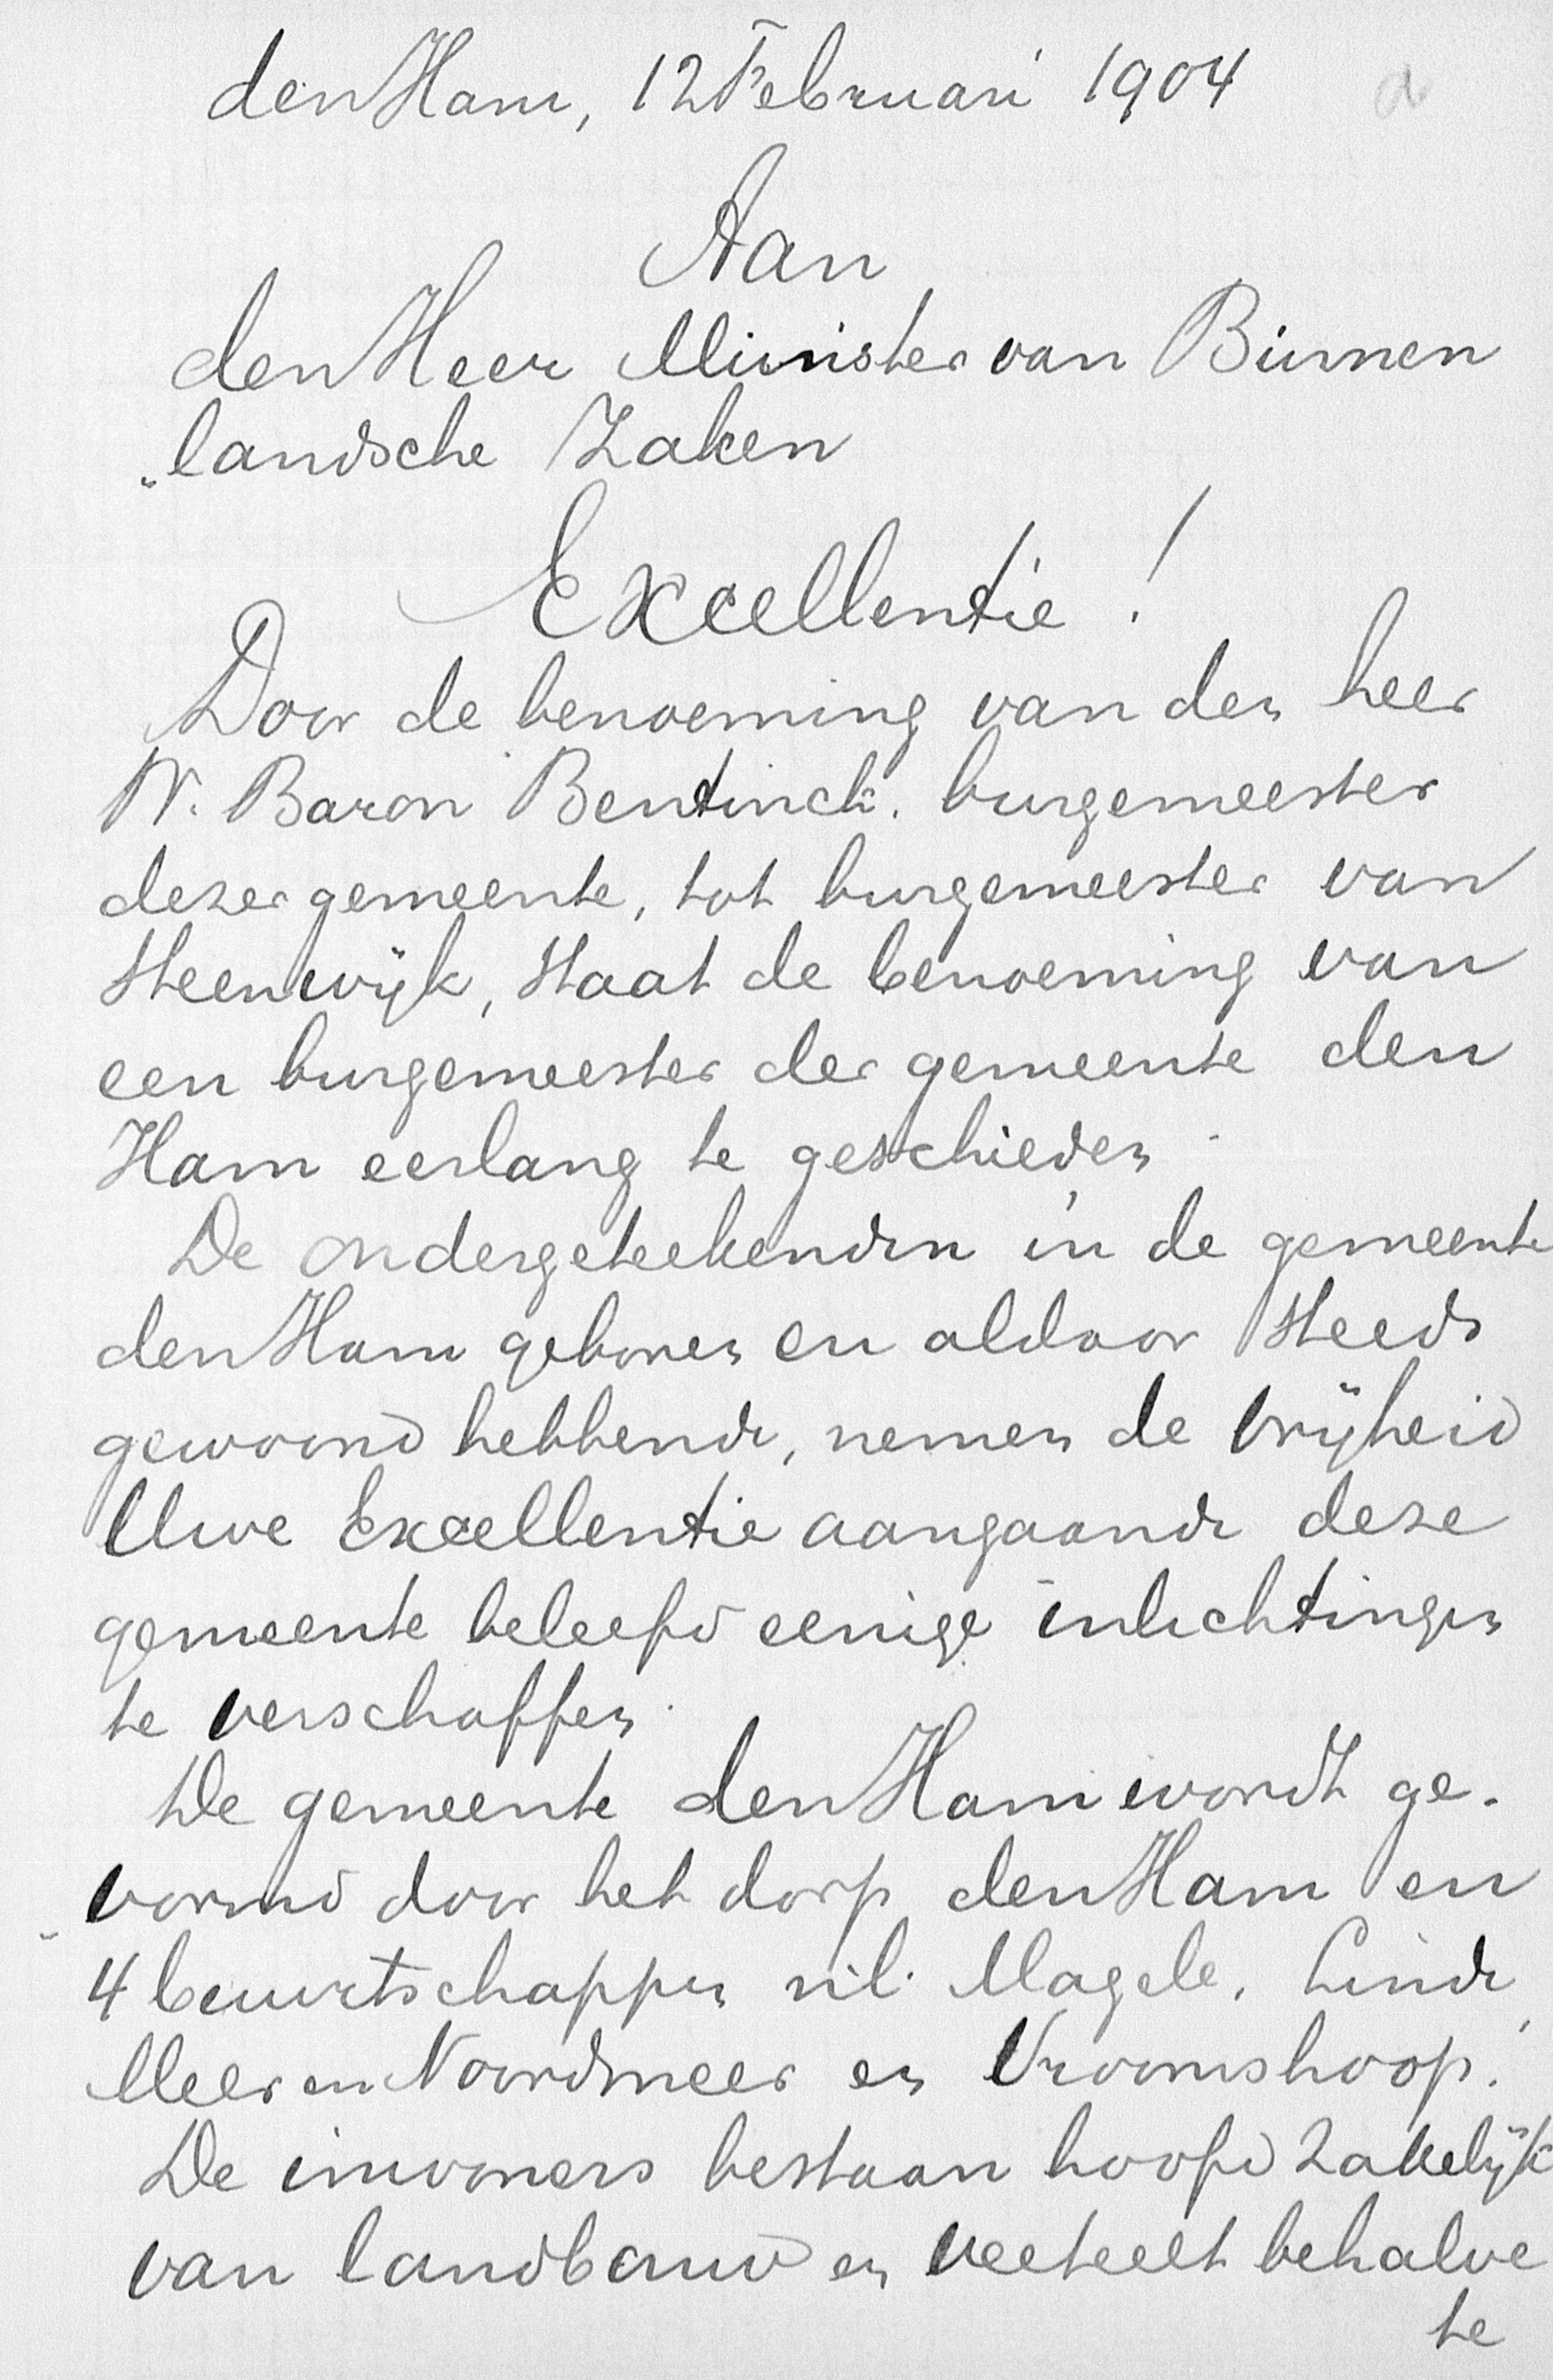 den Ham, 12 Februari 1904
Aan
den Heer Minister van Binnen
„landsche Zaken
Excellentie!
Door de benoeming van den heer
W. Baron Bentinck, burgemeester
dezer gemeente, tot burgemeester van
Steenwijk, staat de benoeming van
een burgemeester der gemeente den
Ham eerlang te geschieden.
De ondergeteekenden in de gemeente
den Ham geboren en aldaar steeds
gewoond hebbende, nemen de vrijheid
Uwe Excellentie aangaande deze
gemeente beleefd eenige inlichtingen
te verschaffen.
De gemeente den Ham wordt ge-
„vormd door het dorp den Ham en
4 buurtschappen nl. Magele, Linde,
Meer en Noordmeer en Vroomshoop.
De inwoners bestaan hoofdzakelijk
van landbouw en veeteelt behalve
te